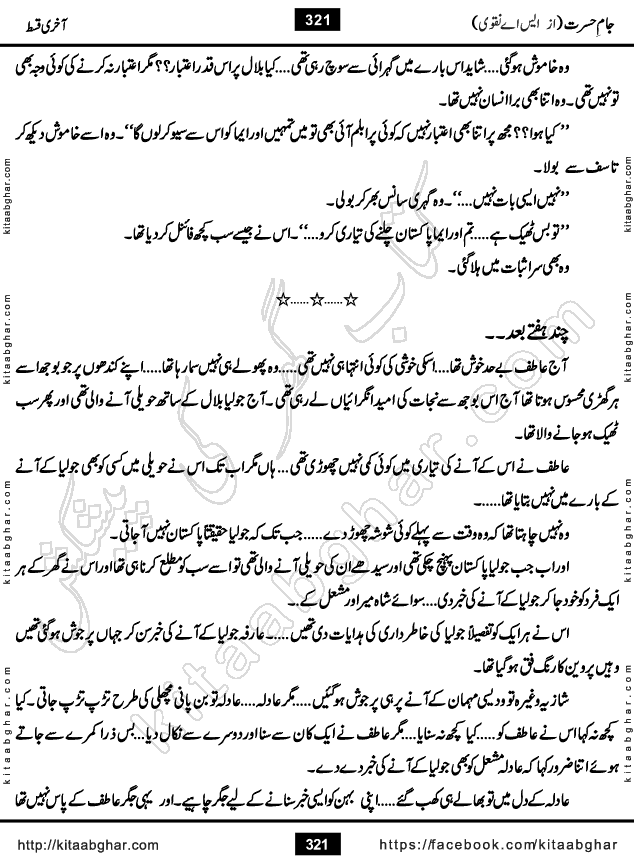 جامِ حسرت (از ایس اے نقوی)
321
آخری قسط
وہ خاموش ہوگئی....شاید اس بارے میں گہرائی سے سوچ رہی تھی....کیا بلال پر اس قدر اعتبار؟؟ مگر اعتبار نہ کرنے کی کوئی وجہ بھی
تو نہیں تھی۔ وہ اتنا بھی برا انسان نہیں تھا۔
’’کیا ہوا؟؟ مجھ پر اتنا بھی اعتبار نہیں کہ کوئی پرابلم آئی بھی تو میں تمہیں اور ایما کو اس سے سیو کرلوں گا‘‘۔ وہ اسے خاموش دیکھ کر
تاسف سے بولا۔
’’نہیں ایسی بات نہیں...‘‘۔ وہ گہری سانس بھر کر بولی۔
’’تو بس ٹھیک ہے.....تم اور ایما پاکستان چلنے کی تیاری کرو...‘‘۔ اس نے جیسے سب کچھ فائنل کر دیا تھا۔
وہ بھی سر اثبات میں ہلا گئی۔
☆......☆......☆
چند ہفتے بعد۔۔
آج عاطف بے حد خوش تھا....اسکی خوشی کی کوئی انتہا ہی نہیں تھی.....وہ پھولے ہی نہیں سما رہا تھا.....اپنے کندھوں پر جو بوجھ اسے
ہر گھڑی محسوس ہوتا تھا آج اس بوجھ سے نجات کی امید انگڑائیاں لے رہی تھی۔ آج جولیا بلال کے ساتھ حویلی آنے والی تھی اور پھر سب
ٹھیک ہو جانے والا تھا۔
عاطف نے اس کے آنے کی تیاری میں کوئی کمی نہیں چھوڑی تھی... ہاں مگر اب تک اس نے حویلی میں کسی کو بھی جولیا کے آنے
کے بارے میں نہیں بتایا تھا......۔
وہ نہیں چاہتا تھا کہ وہ وقت سے پہلے کوئی شوشہ چھوڑ دے.....جب تک کہ جولیا حقیقتاً پاکستان نہیں آ جاتی۔
اور اب جب جولیا پاکستان پہنچ چکی تھی اور سیدھے ان کی حویلی آنے والی تھی تو اسے سب کو مطلع کرنا ہی تھا اور اس نے گھر کے ہر
ایک فرد کو خود جا کر جولیا کے آنے کی خبر دی....سوائے شاہ میر اور مشعل کے۔
اس نے ہر ایک کو تفصیلاً جولیا کی خاطر داری کی ہدایات دی تھیں.....۔ عارفہ جولیا کے آنے کی خبر سن کر جہاں پر جوش ہو گئی تھیں
وہیں پروین کا رنگ فق ہو گیا تھا۔
شازیہ وغیرہ تو ودیسی مہمان کے آنے پر ہی پر جوش ہو گئیں....مگر عادلہ....عادلہ تو بن پانی مچھلی کی طرح تڑپ تڑپ جاتی۔ کیا
کچھ نہ کہا اس نے عاطف کو.....کیا کچھ نہ سنایا....مگر عاطف نے ایک کان سے سنا اور دوسرے سے نکال دیا...بس ذرا کمرے سے جاتے
ہوئے اتنا ضرور کہا کہ عادلہ مشعل کو بھی جولیا کے آنے کی خبر دے دے۔
عادلہ کے دل میں تو بھالے ہی کھب گئے.....اپنی بہن کو ایسی خبر سنانے کے لیے جگر چاہیے۔ اور یہی جگر عاطف کے پاس نہیں تھا
http://kitaabghar.com
321
https://facebook.com/kitaabghar
kitaabghar.com
kitaabghar.com
kitaabghar.com
kitaabghar.com
kitaabghar.com
kitaabghar.com
kitaabghar.com
kitaabghar.com
کتاب گھر کی پیشکش
kitaabghar.com